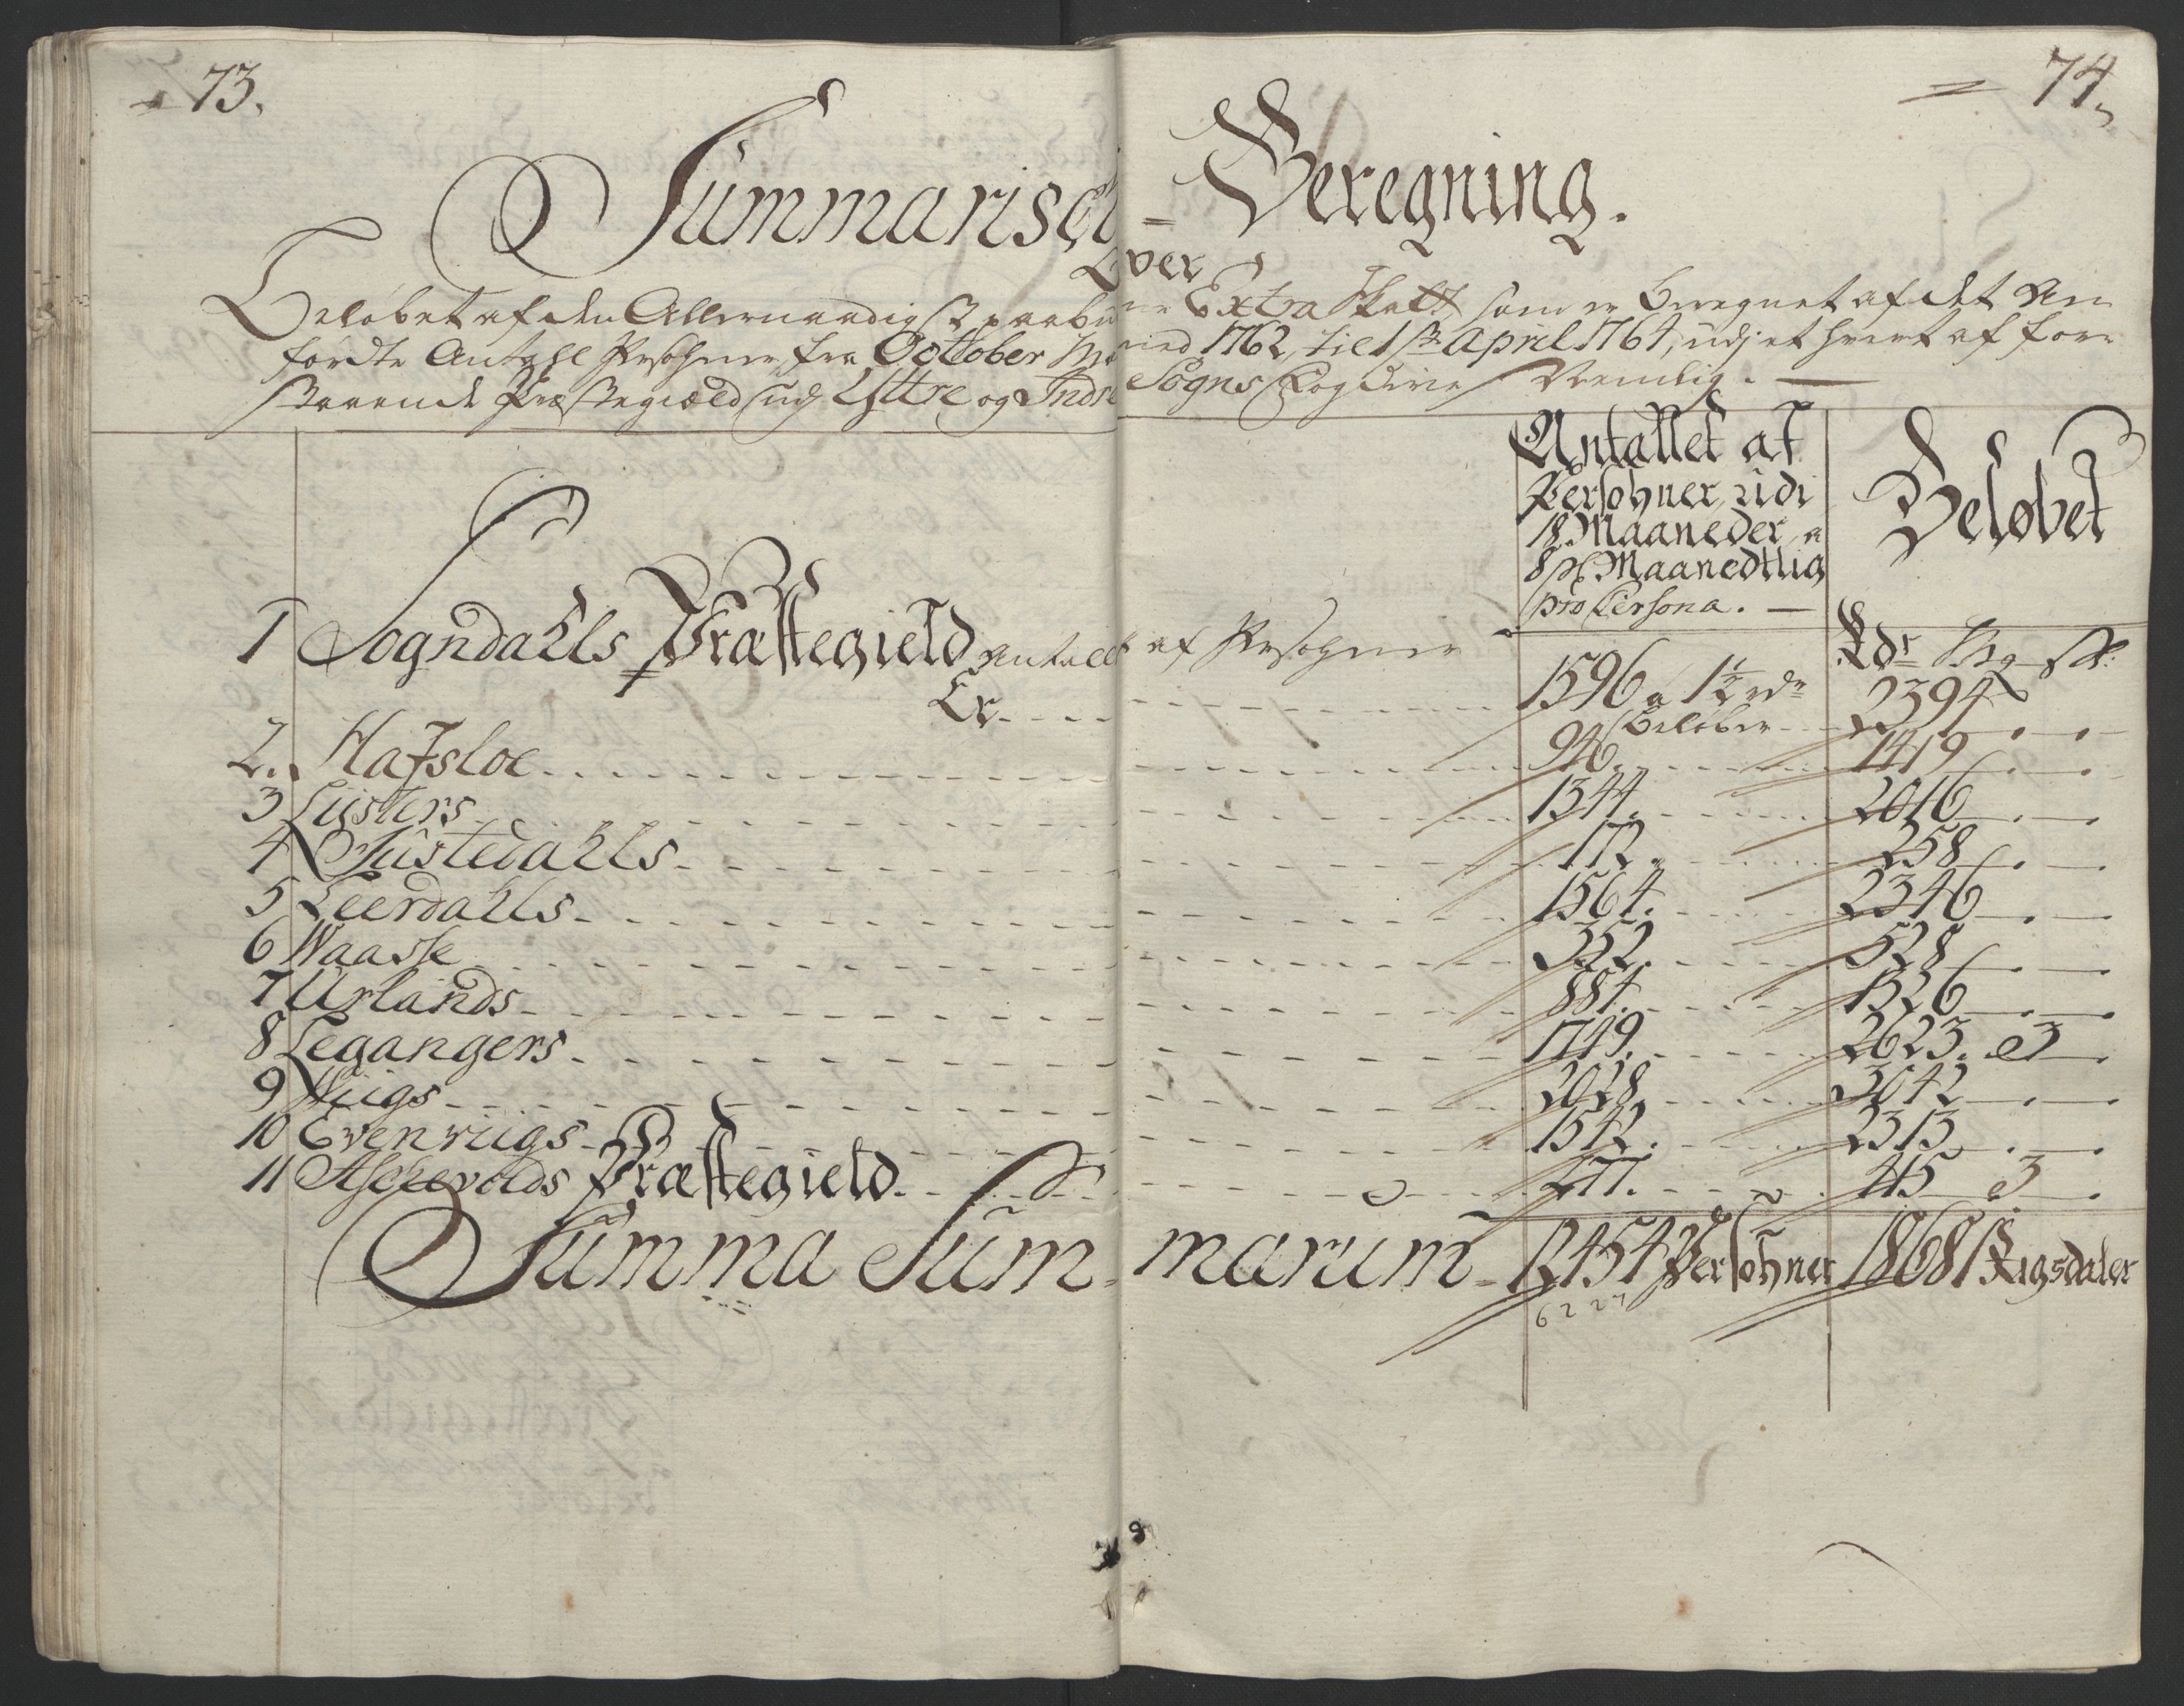 73.
74.
Summarisch = Beregning.
Over
Beløbet af den Allernaadigst paabudne Extra Skatt som er beregnet af det An
førdte Antahl Persohner fra October Maaned 1762, til 1ste April 1764, udj et hvert af fore
staaende Præstegiæld udj Yttre og Indre Sogns Fogderie Nemlig. —
Antallet af
Persohner, udi
18. Maaneder, a
8 s. Maanedtlig
pro Persona. —
Beløbet
Rdr Mg s:
1 Sogndahls Præstegield Antallet af Persohner
Er - - - 1596 a 1½ rdr
beløber - - 2394 . .
2. Hafsloe - - - 946. - - 1419 . .
3 Lüsters - - - 1344. - - 2016 . .
4 Jüstedahls - - - 172. - - 258 . .
5 Leerdahls - - - 1564. - - 2346 . .
6 Waasse - - - 352. - - 528 . .
7 Urlands - - - 884. - - 1326 . .
8 Legangers - - - 1749. - - 2623. 3 .
9 Wiigs - - - 2028 - - 3042 . .
10 Evenviigs - - - 1542. - - 2313 . .
11 Aschevolds Præstegield - - - 277. - - 415 3 .
Summa Summarum - 12454 Persohner 18681 Rigsdaler
6227